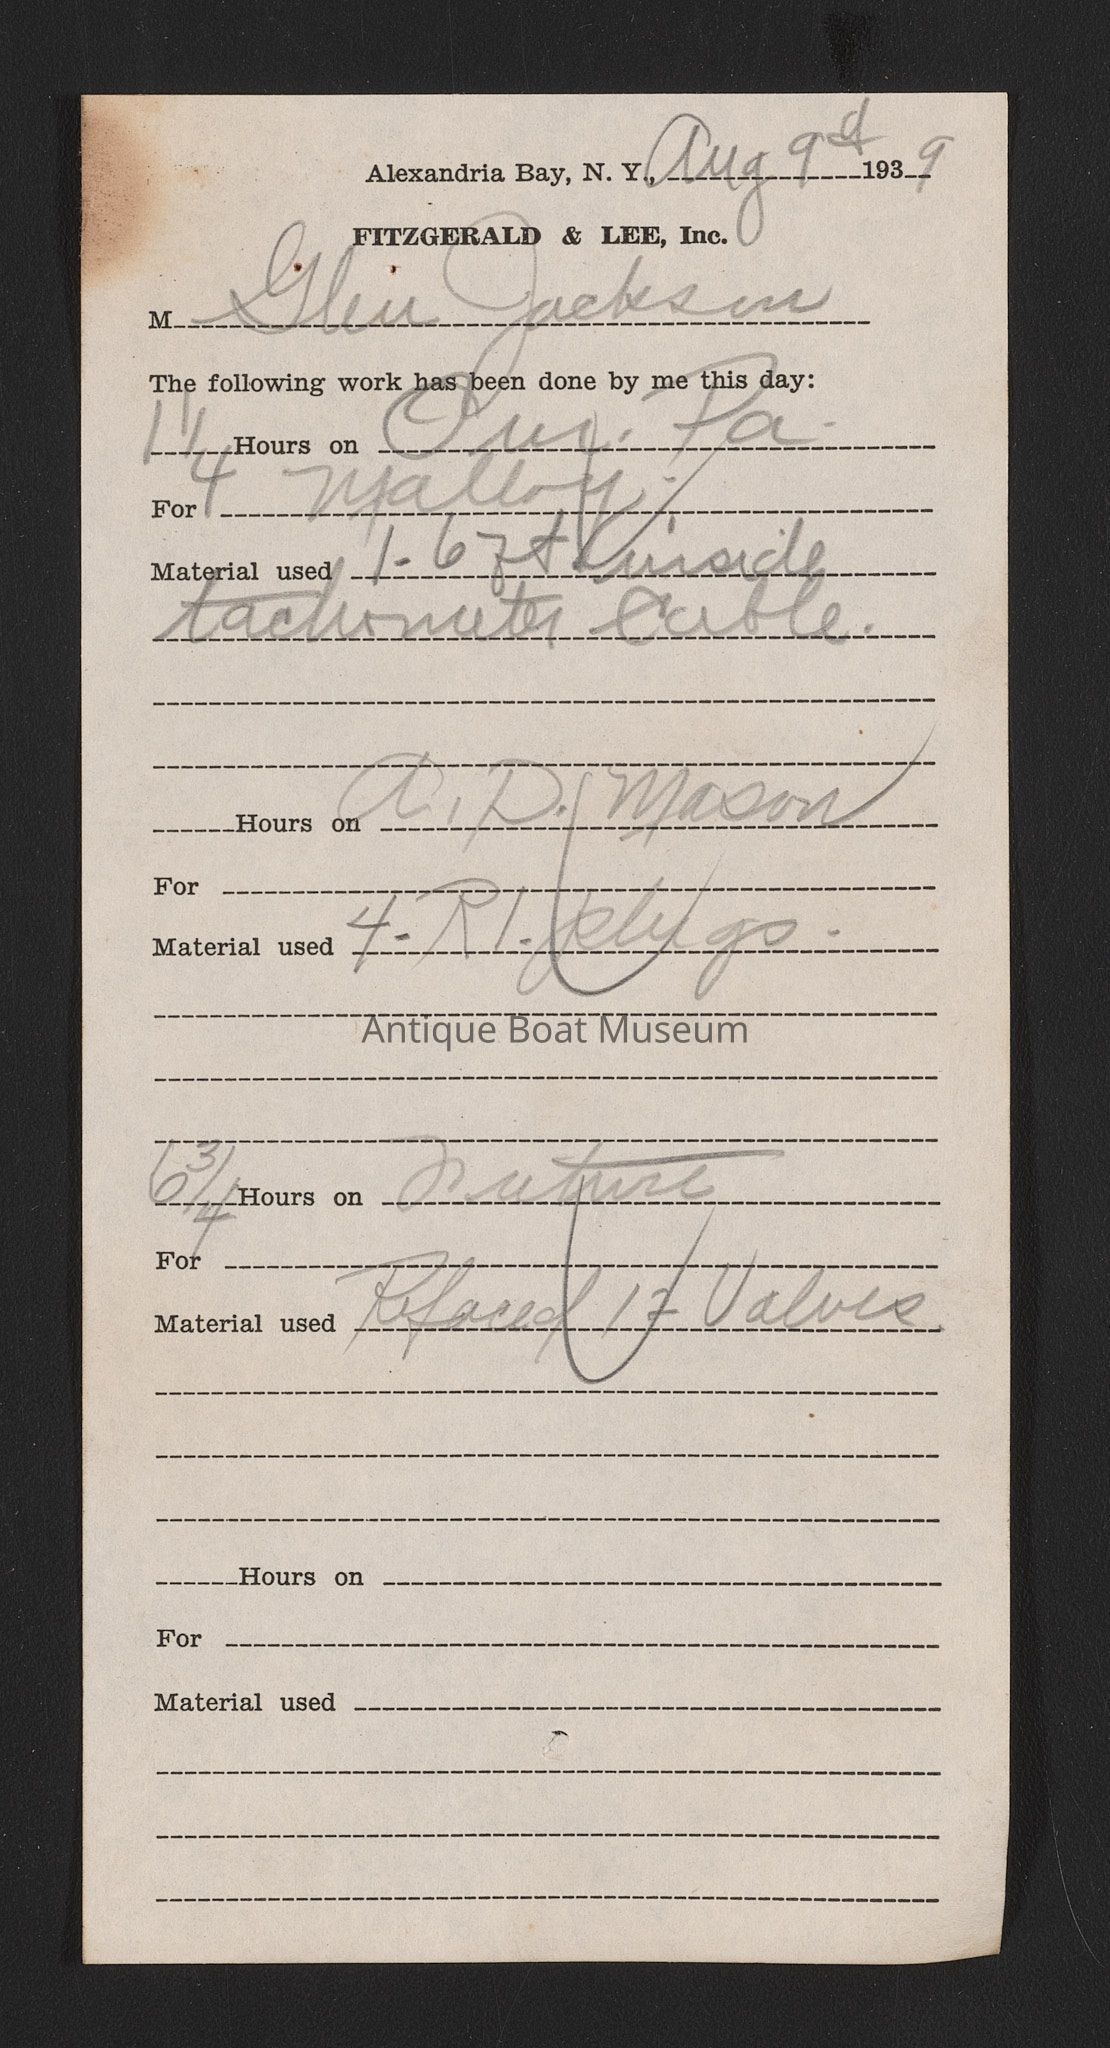 Alexandria Bay, N. Y., Aug 9d 1939
FITZGERALD & LEE, Inc.
M Glen Jackson
The following work has been done by me this day:
1 1/4 Hours on Pa.
For Malloy.
Material used 1-6 ft inside
tachometer Cable.
Hours on A. D. Mason
For
Material used 4-R1. plugs.
Antique Boat Museum
6 3/4 Hours on
For
Material used Refaced Valves
Hours on
For
Material used